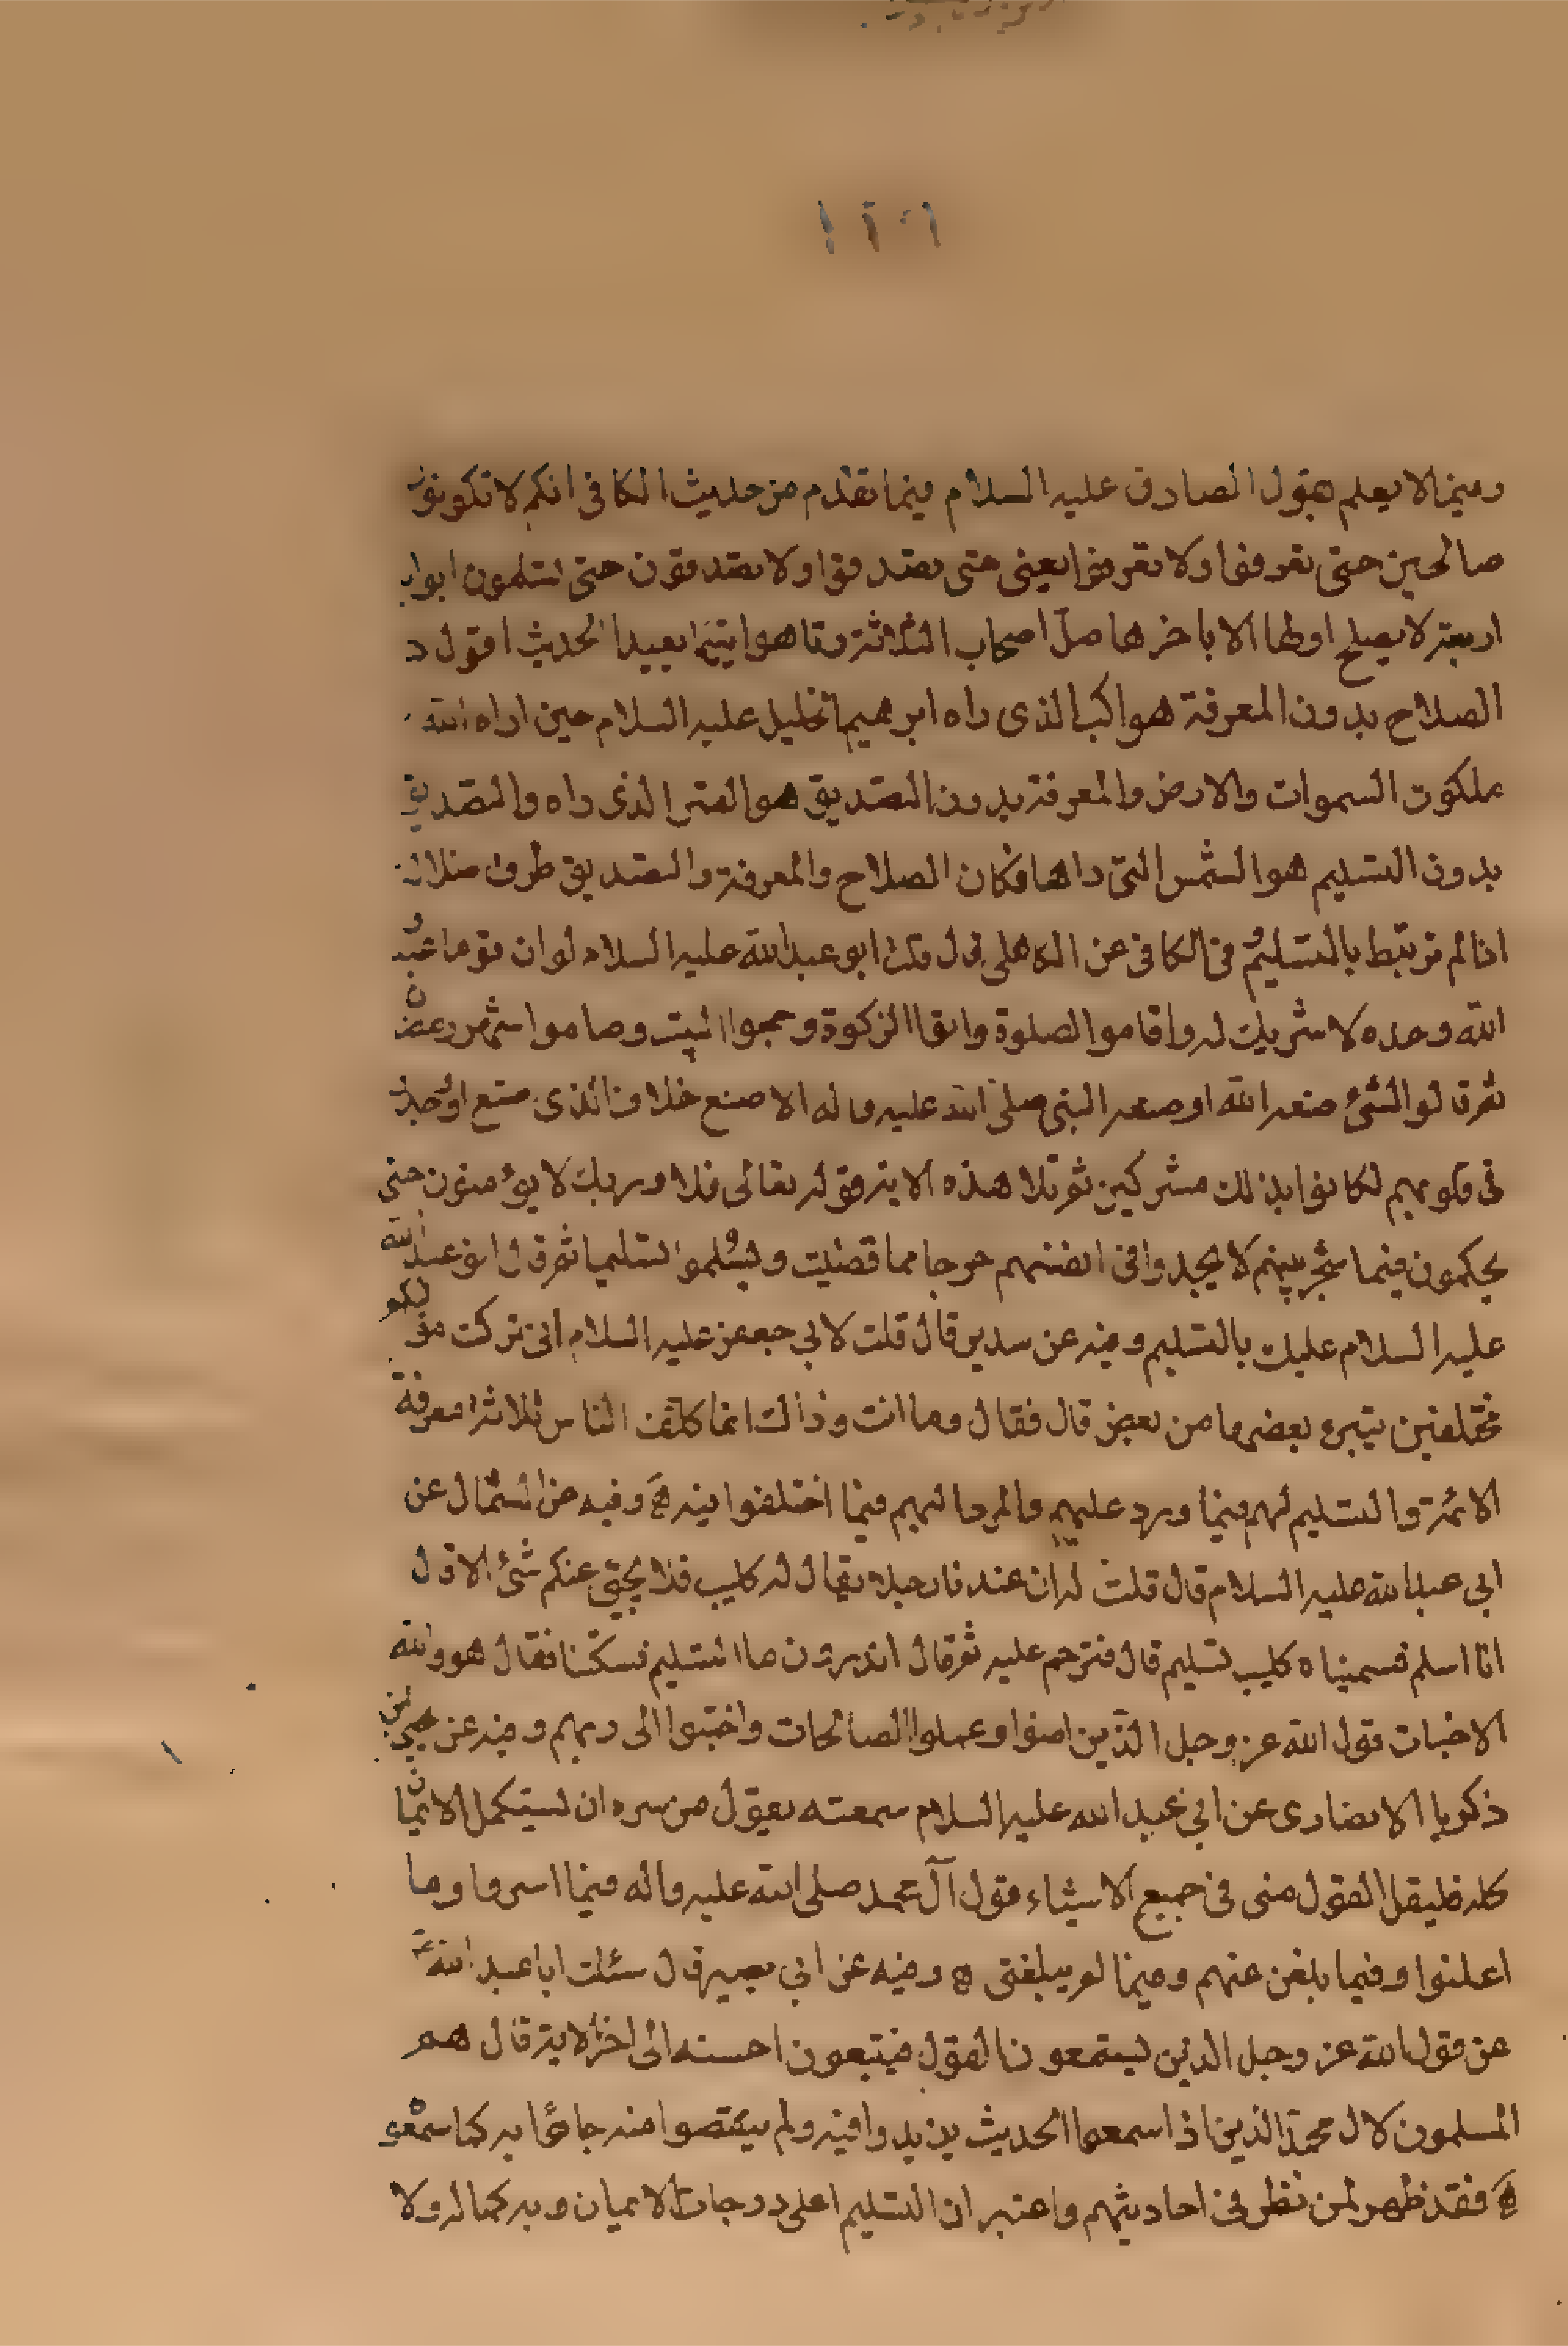 وفيما لا يعلم بقول الصادق عليه السلام فيما تقدم من حديث الكافي انكم لا تكونون
صالحين حتى تعرفوا ولا تعرفوا يعني حتى تصدقوا ولا تصدقون حتى تسلمون ابواب
اربعة لا يصلح اولها الا باخرها ضل اصحاب الثلاثة وتاهوا تيها بعيدا الحديث اقول
الصلاح بدون المعرفة هو الذي راه ابرهيم الخليل عليه السلام حين اراه الله
ملكوت السموات والارض والمعرفة بدون التصديق هو القمر الذي راه والتصديق
بدون التسليم هو الشمس التي راها فكان الصلاح والمعرفة والتصديق طرق ضلالة
اذا لم ترتبط بالتسليم ففي الكافي عن الكاهلي قال قال ابو عبدالله عليه السلام لو ان قوما عبدوا
الله وحده لا شريك له واقاموا الصلوة واتوا الزكوة وحجوا البيت وصاموا شهر رمضان
ثم قالوا لشئ صنعه الله او صنعه النبي صلى الله عليه واله الا صنع خلاف الذي صنع او وجدوا
في قلوبهم لكانوا بذلك مشركين ثم تلا هذه الاية قوله تعالى فلا وربك لا يؤمنون حتى
يحكمون فيما شجر بينهم لا يجدوا في انفسهم حرجا مما قضيت ويسلموا تسليما ثم قال ابو عبدالله
عليه السلام عليك بالتسليم وفيه عن سدير قال قلت لابي جعفر عليه السلام اني تركت مواليكم
مختلفين يتبرء بعضهم من بعض قال فقال وما انت وذاك انما كلف الناس ثلاثة معرفة
الائمة والتسليم لهم فيما ورد عليهم والرد اليهم فيما اختلفوا فيه ه وفيه عن الشمال عن
ابي عبدالله عليه السلام قال قلت له ان عندنا رجلا يقال له كليب فلا يجئ عنكم شئ الا قال
انا اسلم فسميناه كليب تسليم قال فترحم عليه ثم قال اتدرون ما التسليم فسكتنا فقال هو والله
الاخبات قول الله عز وجل الذين امنوا وعملوا الصالحات واخبتوا الى ربهم وفيه عن يحيى بن
ذكريا الانصاري عن ابي عبد الله عليه السلام سمعته يقول من سره ان يستكمل الايمان
كله فليقل القول مني في جميع الاشياء قول آل محمد صلى الله عليه واله فيما اسروا وما
اعلنوا وفيما بلغني عنهم وفيما لم يبلغني ه وفيه عن ابي بصير قال سئلت ابا عبد الله ع
عن قول الله عز وجل الذين يستمعون القول فيتبعون احسنه الى اخر الاية قال هم
المسلمون لال محمد الذين اذا سمعوا الحديث يزيدوا فيه ولم ينقصوا منه جاؤا به كما سمعوه
ه فقد ظهر لمن نظر في احاديثهم واعتبر ان التسليم اعلى درجات الايمان وبه كماله ولا